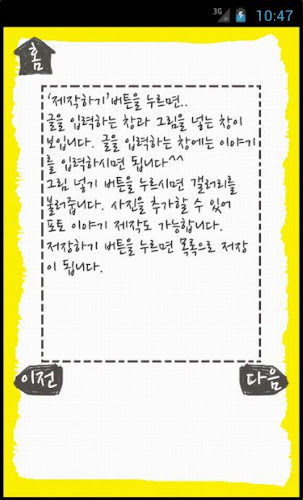 3G 10:47
홈
'제작하기'버튼을 누르면..
글을 입력하는 창과 그림을 넣는 창이
보입니다. 글을 입력하는 창에는 이야기
를 입력하시면 됩니다^^
그림 넣기 버튼을 누르시면 갤러리를
불러줍니다. 사진을 추가할 수 있어
포토 이야기 제작도 가능합니다.
저장하기 버튼을 누르면 목록으로 저장
이 됩니다.
이전 다음